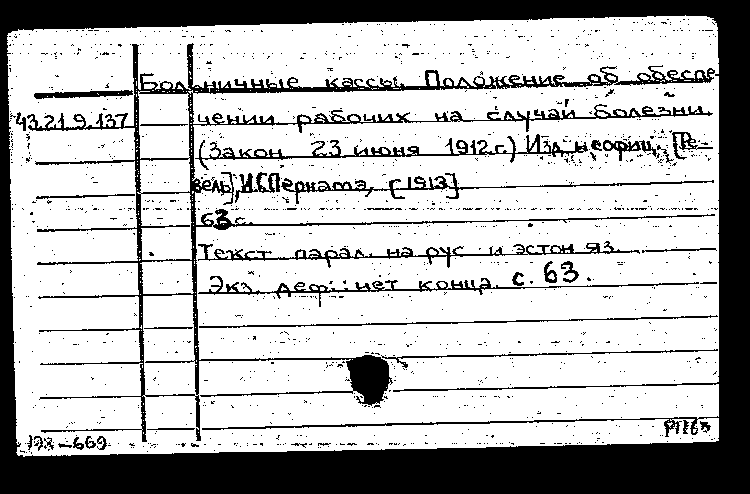 Больничные кассы. Положение об обеспе-
43.21.9.137
чении рабочих на случай болезни.
(Закон 23 июня 1912 г.) Изд. неофиц. [Ре-
вель], И.С. Перната, [1913]
63 с.
Текст парал. на рус. и эстон яз.
Экз. деф.: нет конца. с. 63.
198-669